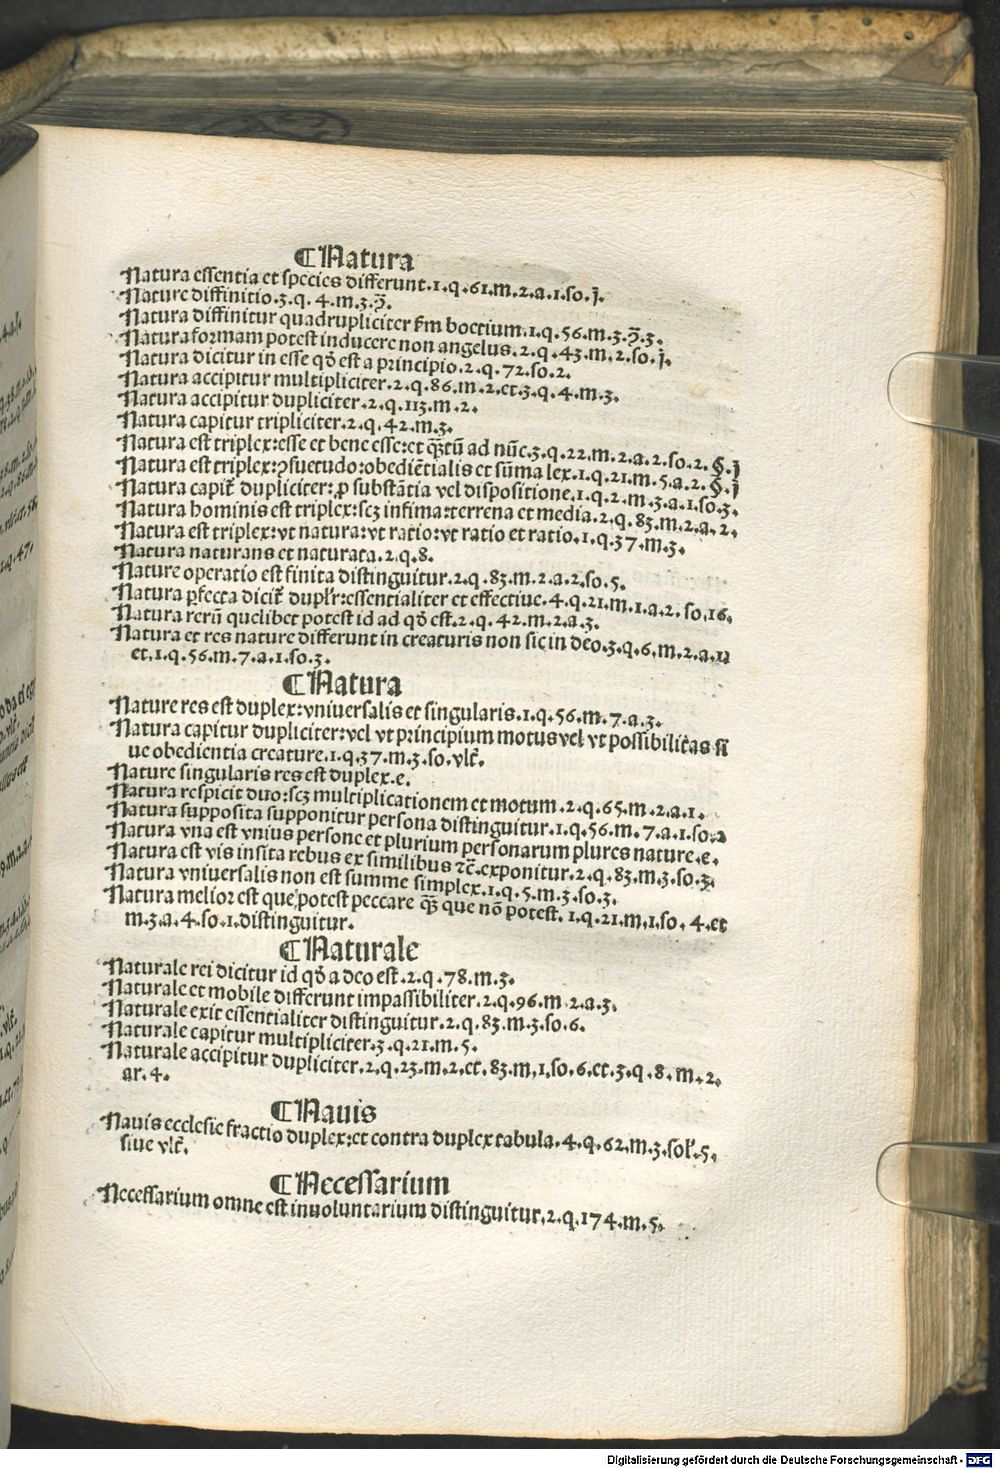 ¶Natura
Natura essentia et species differunt.1.q.61.m.2.a.1.so.j.
Nature diffinitio.3.q.4.m.3.
Natura diffinitur quadrupliciter fm boetium.1.q.56.m.3. .3.
Natura formam potest inducere non angelus.2.q.43.m.2.so.j.
Natura dicitur in esse qđ est a principio.2.q.72.so.2.
Natura accipitur multipliciter.2.q.86.m.2.et.3.q.4.m.3.
Natura accipitur dupliciter.2.q.113.m.2.
Natura capitur tripliciter.2.q.42.m.3.
Natura est triplex:esse et bene esse:et qꝫtū ad nūc.3.q.22.m.2.a.2.so.2.§.j
Natura est triplex:ꝯsuetudo:obediētialis et sūma lex.1.q.21.m.5.a.2.§.j
Natura capit̄ dupliciter:ꝓ substātia vel dispositione.1.q.2.m.3.a.1.so.3.
Natura hominis est triplex:scꝫ infima:terrena et media.2.q.83.m.2.a.2.
Natura est triplex:vt natura:vt ratio:vt ratio et ratio.1.q.37.m.3.
Natura naturans et naturata.2.q.8.
Nature operatio est finita distinguitur.2.q.83.m.2.a.2.so.5.
Natura ꝑfecta dicit̄ dupl'r:essentialiter et effectiue.4.q.21.m.1.a.2.so.16.
Natura rerū quelibet potest id ad qđ est.2.q.42.m.2.a.3.
Natura et res nature differunt in creaturis non sic in deo.3.q.6.m.2.a.11
et.1.q.56.m.7.a.1.so.3.
¶Natura
Nature res est duplex:vniuersalis et singularis.1.q.56.m.7.a.3.
Natura capitur dupliciter:vel vt principium motus vel vt possibilitas si
ue obedientia creature.1.q.37.m.3.so.vlt̄.
Nature singularis res est duplex.e.
Natura respicit duo:scꝫ multiplicationem et motum.2.q.65.m.2.a.1.
Natura supposita supponitur persona distinguitur.1.q.56.m.7.a.1.so.2
Natura vna est vnius persone et plurium personarum plures nature.e.
Natura est vis insita rebus ex similibus ⁊c̄.exponitur.2.q.83.m.3.so.3.
Natura vniuersalis non est summe simplex.1.q.5.m.3.so.3.
Natura melior est que potest peccare qꝫ que nō potest.1.q.21.m.1.so.4.et
m.3.a.4.so.1.distinguitur.
¶Naturale
Naturale rei dicitur id qđ a deo est.2.q.78.m.3.
Naturale et mobile differunt impassibiliter.2.q.96.m.2.a.3.
Naturale exit essentialiter distinguitur.2.q.83.m.3.so.6.
Naturale capitur multipliciter.3.q.21.m.5.
Naturale accipitur dupliciter.2.q.23.m.2.et.83.m.1.so.6.et.3.q.8.m.2.
ar.4.
¶Nauis
Nauis ecclesie fractio duplex:et contra duplex tabula.4.q.62.m.3.sol'.5.
siue vlt̄.
¶Necessarium
Necessarium omne est inuoluntarium distinguitur.2.q.174.m.5.
Digitalisierung gefördert durch die Deutsche Forschungsgemeinschaft - DFG